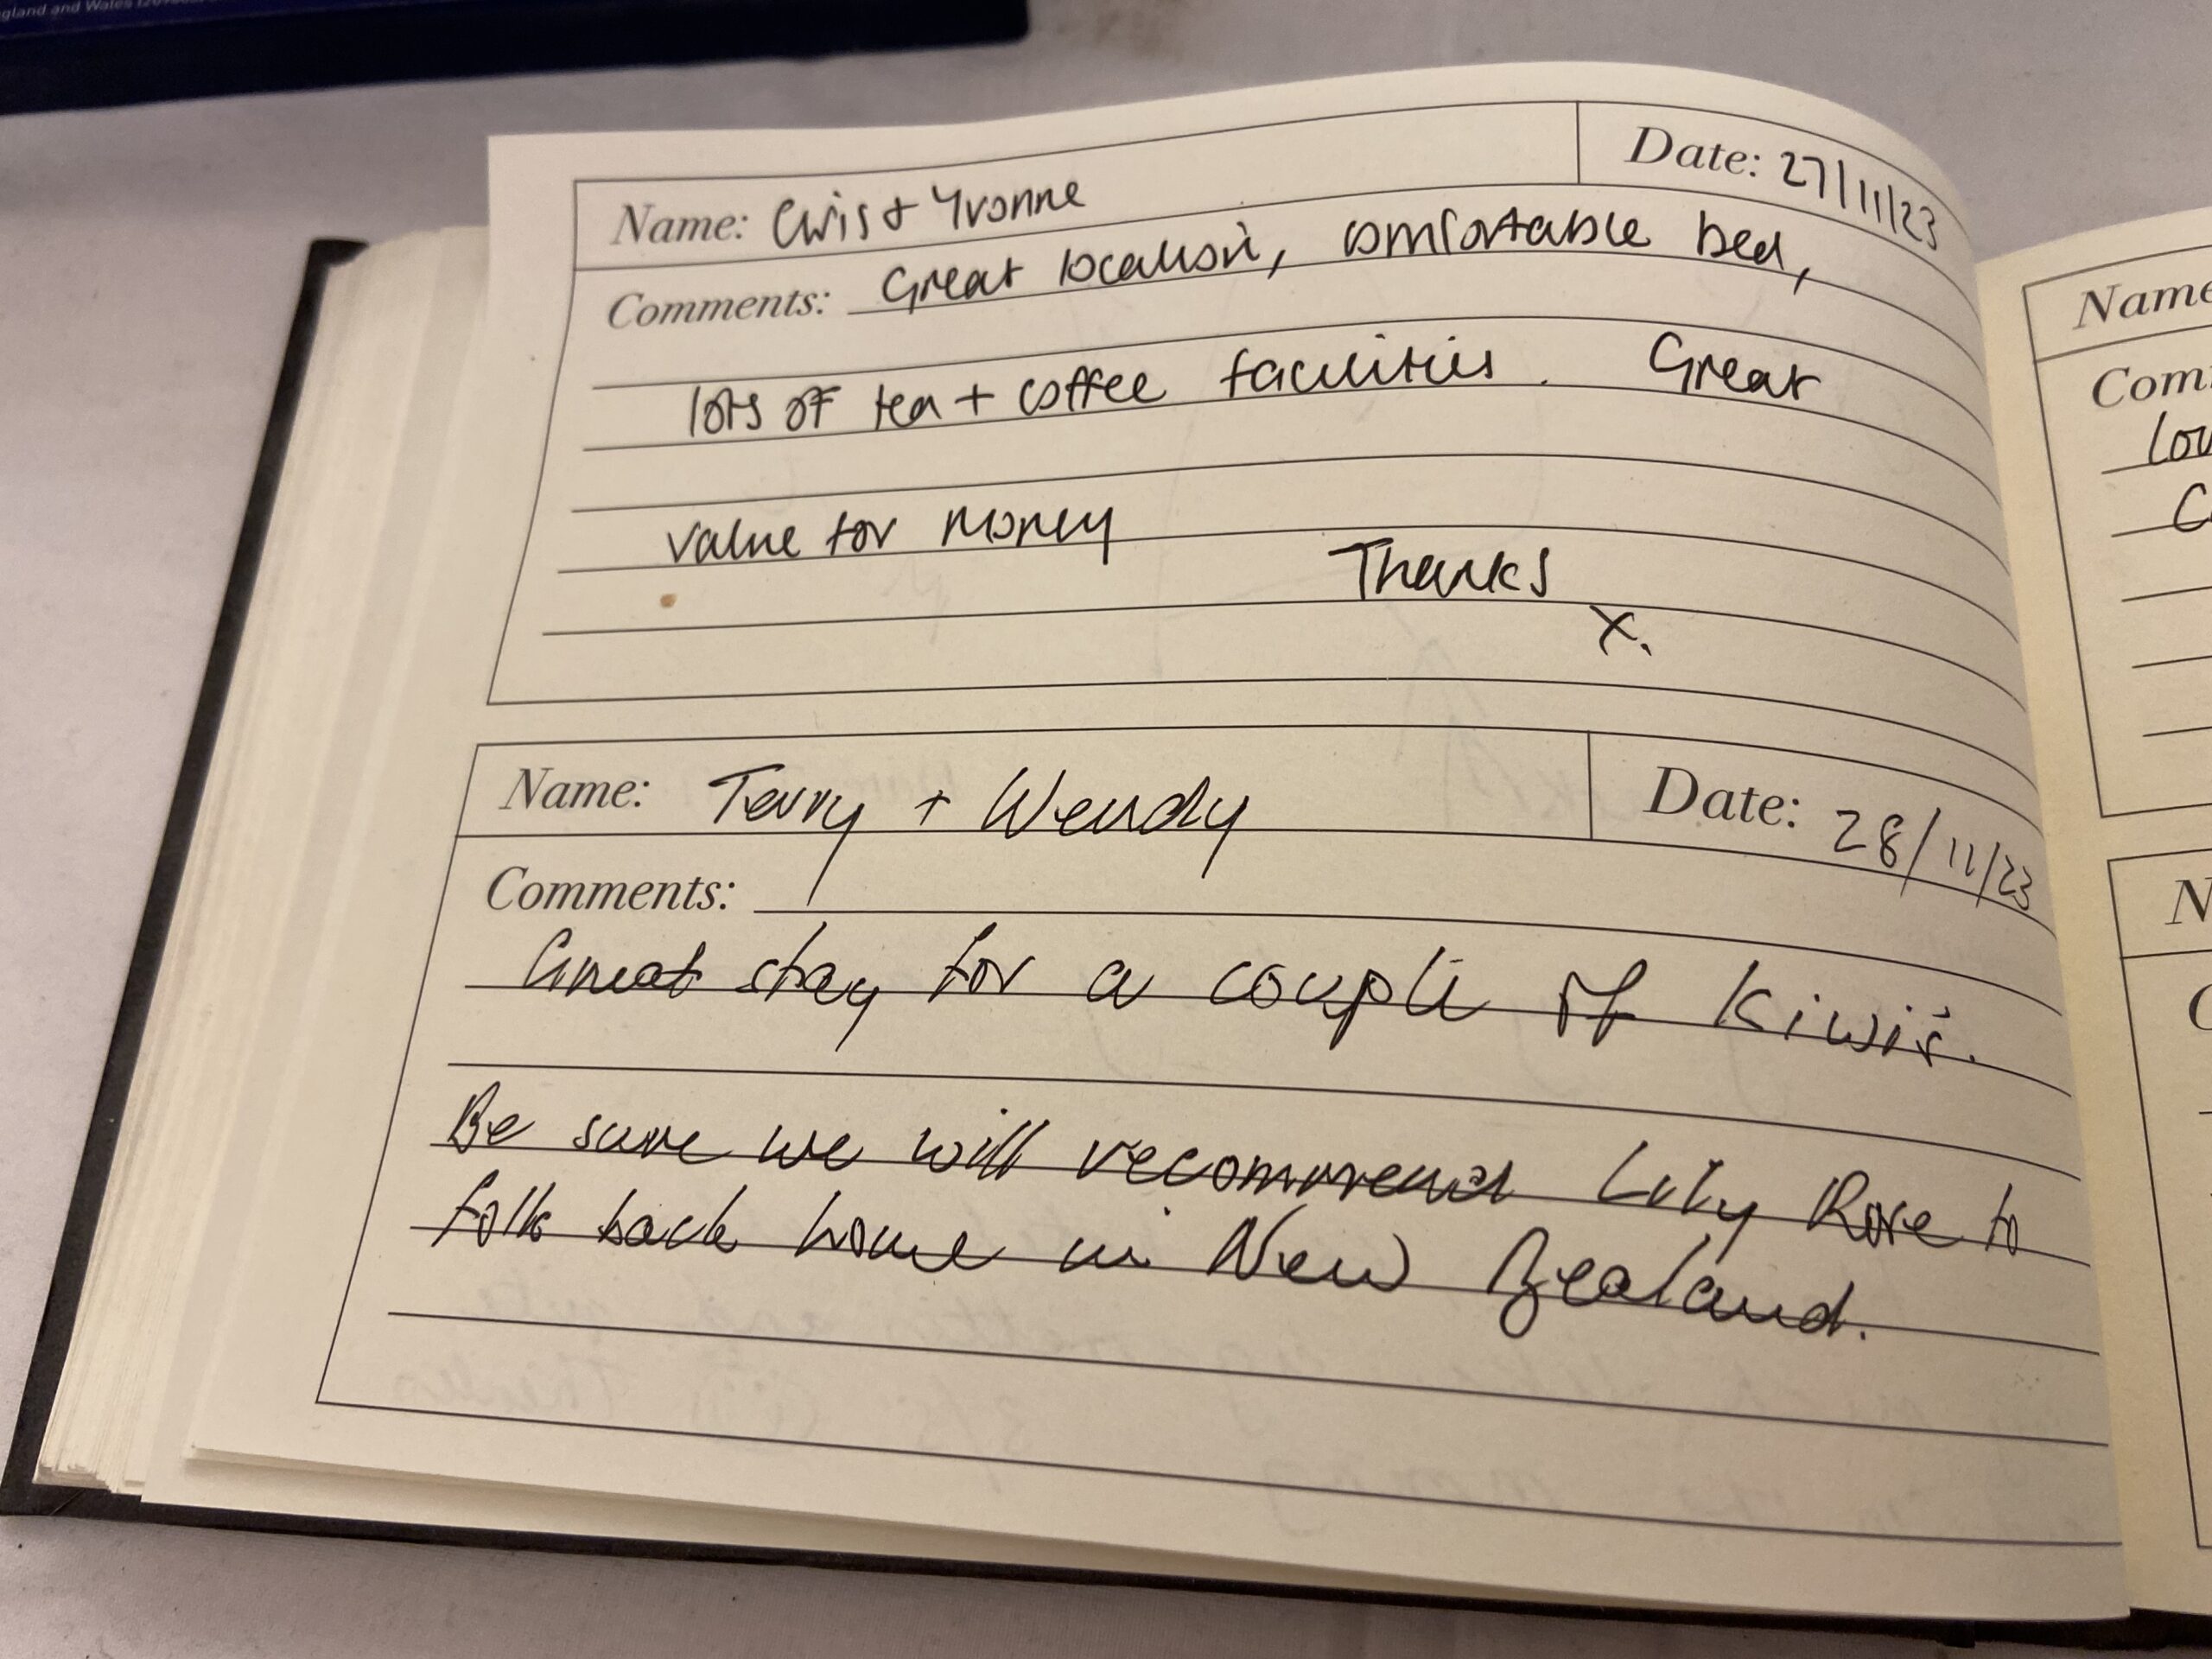 gland and Wales
Name: Chris + Yvonne
Date: 27/11/23
Comments: Great location, comfortable bed,
lots of tea + coffee facilities. Great
value for money
Thanks
x.
Name: Terry + Wendy
Date: 28/11/23
Comments:
Great stay for a couple of Kiwis.
Be sure we will recommend Lily Rose to
folk back home in New Zealand.
Name
Com
lov
C
N
C